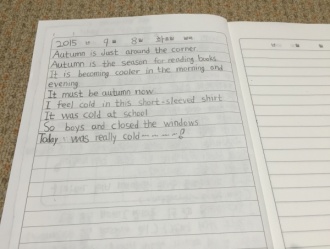 2015 년 9 월 8 일 화요일
Autumn is Just around the corner
Autumn is the season for reading books.
It is becoming cooler in the morning and
evening.
It must be autumn now.
I feel cold in this short-sleeved shirt
It was cold at school
So boys and closed the windows
Today was really cold~~~~!